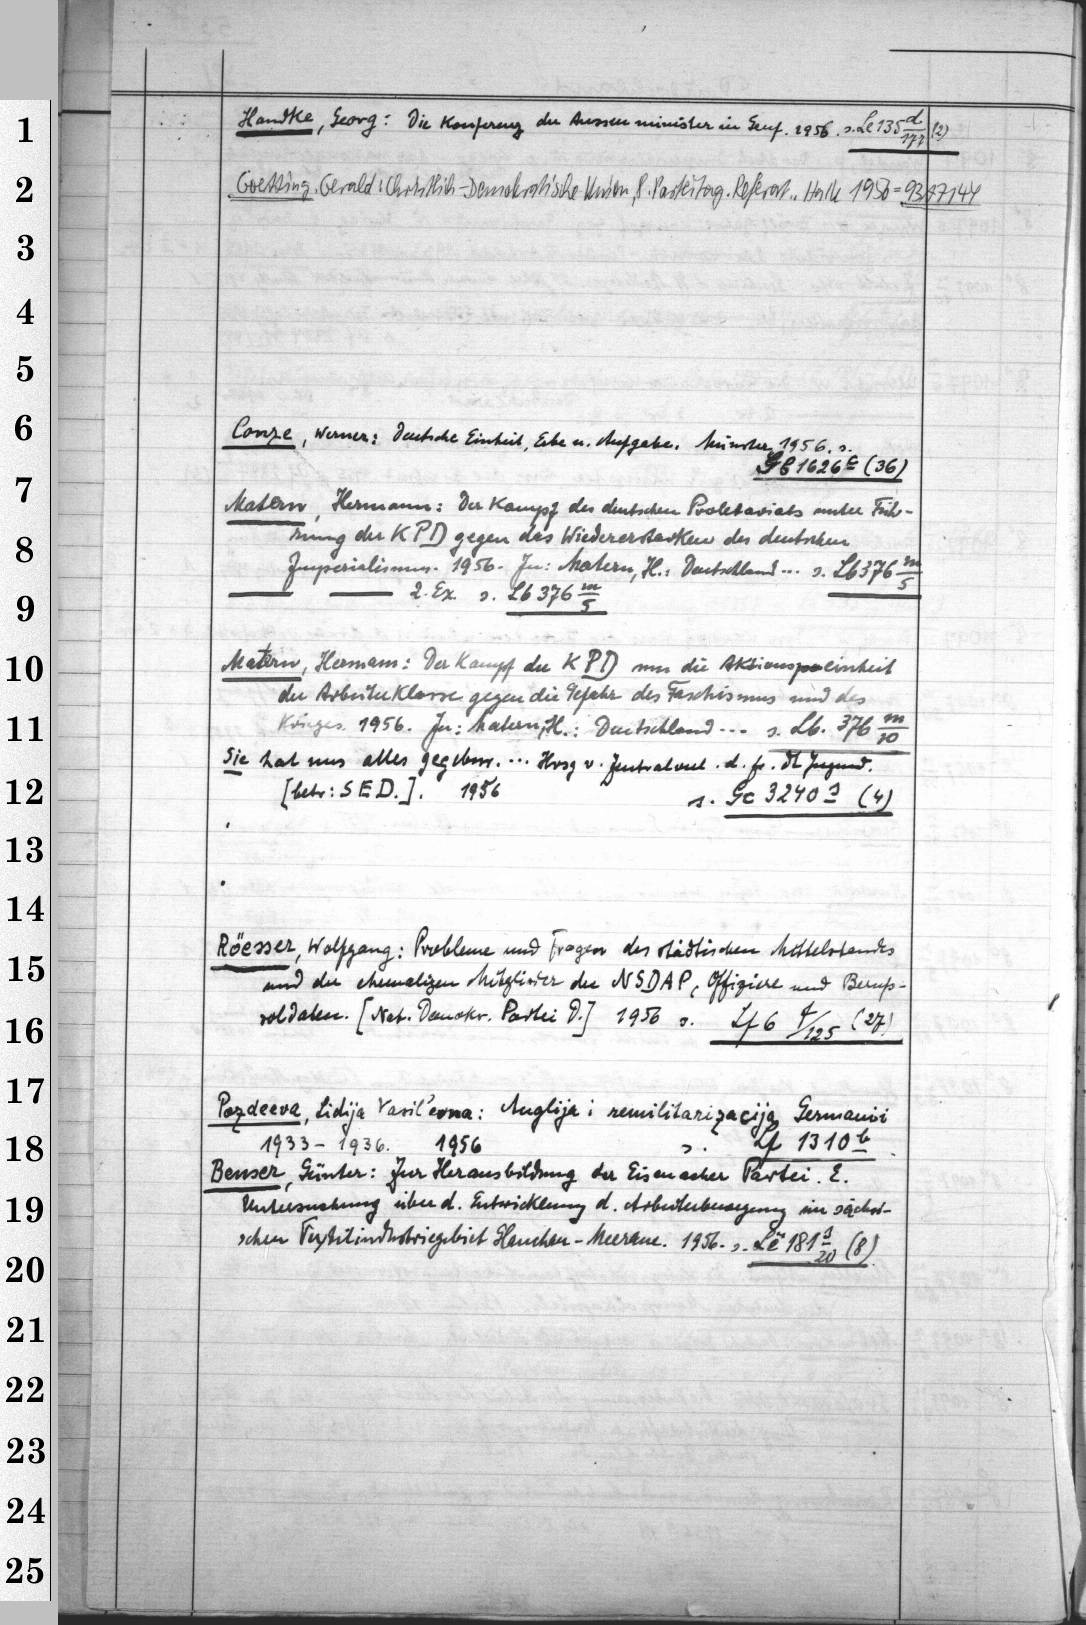 1 Handke, Georg: Die Konferenz der Aussenminister in Genf. 1956. s. Le 135 d/177 (2)
2 Goetting. Gerald: Christlich-Demokratische Union, 8. Parteitag. Referat.. Halle 1956 = 93A7144
3
4
5
6 Conze, Werner: Deutsche Einheit, Erbe u. Aufgabe. Münster 1956. s.
Gb 1626 c (36)
7 Matern, Hermann: Der Kampf des deutschen Proletariats unter Füh-
rung der KPD gegen das Wiedererstarken des deutschen
8 Imperialismus. 1956. In: Matern, H.: Deutschland... s. Lb 376 m/5
9 2. Ex. s. Lb 376 m/5
10 Matern, Hermann: Der Kampf der KPD um die Aktionseinheit
der Arbeiterklasse gegen die Gefahr des Faschismus und des
11 Krieges. 1956. In: Matern, H.: Deutschland... s. Lb. 376 m/10
Sie hat uns alles gegeben.... Hrsg v. Zentralrat. d. fr. dt Jugend.
12 [betr: SED.]. 1956 s. Gc 3240 s (4)
13
14
15 Röesser, Wolfgang: Probleme und Fragen des städtischen Mittelstandes
und der ehemaligen Mitglieder der NSDAP, Offiziere und Berufs-
16 soldaten. [Nat. Demokr. Partei D.] 1956 s. Lf 6 /125 (27)
17 Pozdeeva, Lidija Vasil'evna: Anglija i remilitarizacija Germanii
18 1933-1936. 1956 s. Lf 1310 b
Benser, Günter: Zur Herausbildung der Eisenacher Partei. E.
19 Untersuchung über d. Entwicklung d. Arbeiterbewegung im sächsi-
schen Textilindustriegebiet Glauchau-Meerane. 1956. s. Lë 181 s/20 (8)
20
21
22
23
24
25